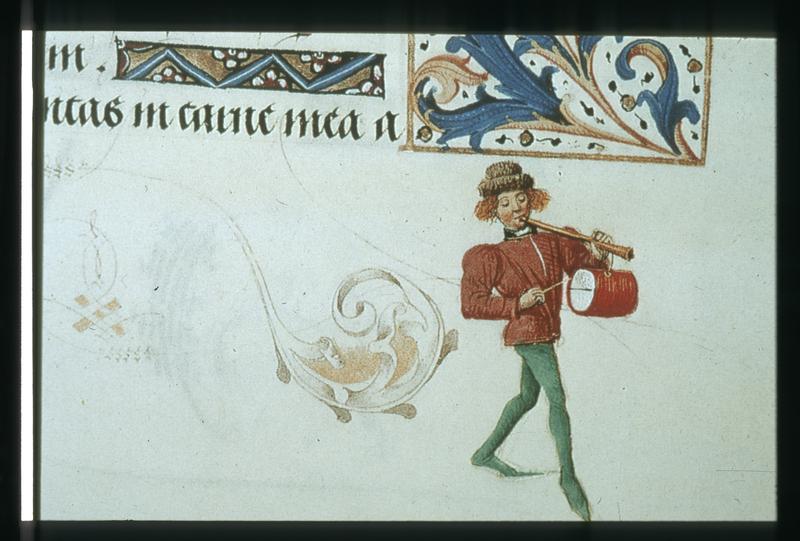 m.
ntas in carne mea a